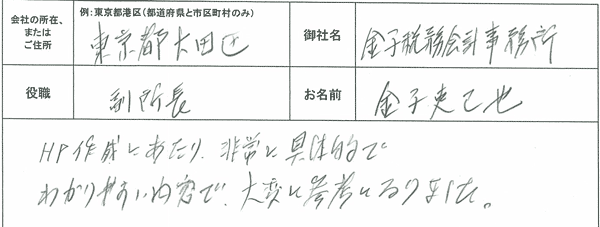 会社の所在、または ご住所
例:東京都港区(都道府県と市区町村のみ)
東京都大田区
御社名
金子税務会計事務所
役職
副所長
お名前
金子 也
HP作成にあたり、非常に具体的で
わかりやすい内容で、大変に参考になりました。